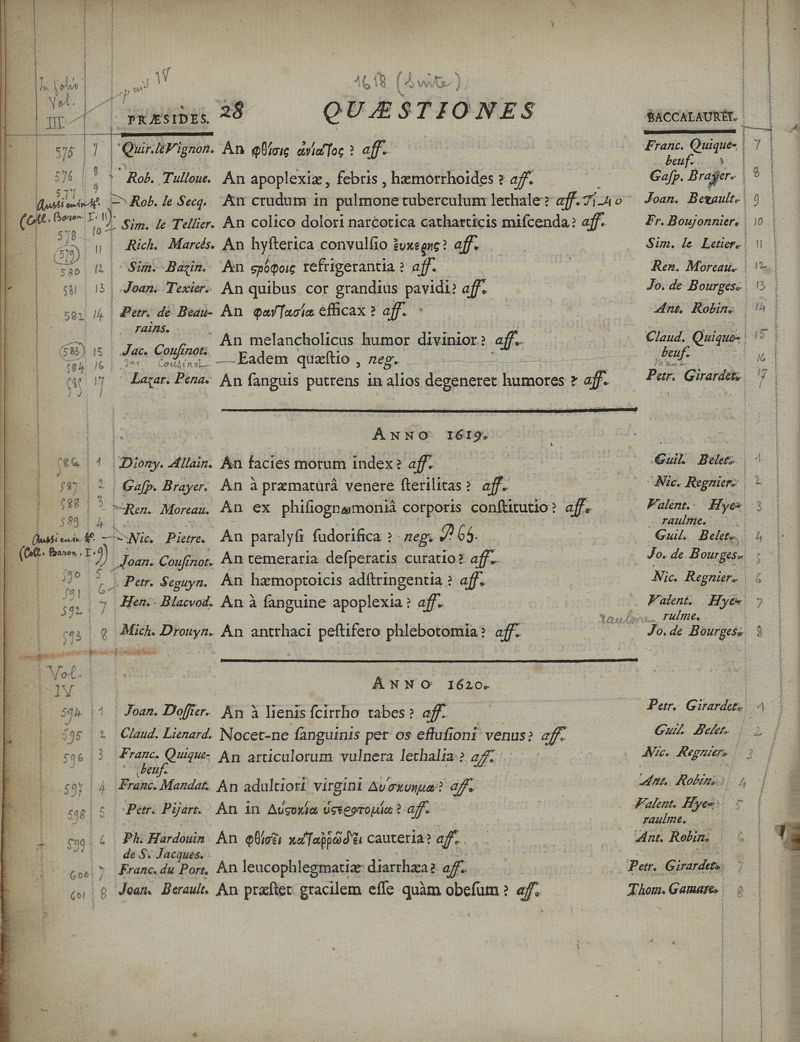 In folio puis IV 1618 (Suite)
Vol.
III PRÆSIDES. 28 QUÆSTIONES BACCALAUREI.
575 7 Quir. le Vignon. An φθίσις ἀνίατος ? aff. Franc. Quique-
beuf.
576 8 Rob. Tulloue. An apoplexiæ, febris, hæmorrhoides ? aff. Gaſp. Brayer. 8
577 9 Rob. le Secq. An crudum in pulmone tuberculum lethale ? aff. Joan. Berault. 9
Aussi en in 4º.
(Coll. Baron. I. 11)
578 10 Sim. le Tellier. An colico dolori narcotica catharticis miſcenda ? aff. Fr. Boujonnier. 10
(579) 11 Rich. Marcés. An hyſterica convulſio aff. Sim. le Letier. 11
580 12 Sim. Bazin. An ςρόφοις refrigerantia ? aff. Ren. Moreau. 12
581 13 Joan. Texier. An quibus cor grandius pavidi ? aff. Jo. de Bourges. 13
582 14 Petr. de Beau- An φαντασία efficax ? aff. Ant. Robin. 14
rains.
An melancholicus humor divinior ? aff. Claud. Quique- 15
(583) 15 Jac. Couſinot. beuf.
584 16 Jac. Cousinot —Eadem quæſtio, neg. 16
585 17 Lazar. Pena. An ſanguis putrens in alios degeneret humores ? aff. Petr. Girardet. 17
ANNO 1619.
586 1 Diony. Allain. An facies morum index ? aff. Guil. Belet. 1
587 2 Gaſp. Brayer. An à præmaturâ venere ſterilitas ? aff. Nic. Regnier. 2
588 3 Ren. Moreau. An ex phiſiognωmoniâ corporis conſtitutio ? aff. Valent. Hye- 3
raulme.
589 4 Nic. Pietre. An paralyſi ſudorifica ? neg. Guil. Belet. 4
Aussi en in 4º.
(Coll. Baron. I. 9)
590 5 Joan. Couſinot. An temeraria deſperatis curatio ? aff. Jo. de Bourges. 5
591 6 Petr. Seguyn. An hæmoptoicis adſtringentia ? aff. Nic. Regnier. 6
592 7 Hen. Blacvod. An à ſanguine apoplexia ? aff. Valent. Hye- 7
raulme rulme.
593 8 Mich. Drouyn. An antrhaci peſtifero phlebotomia ? aff. Jo. de Bourges. 8
Vol.
IV ANNO 1620.
594 1 Joan. Doſſier. An à lienis ſcirrho tabes ? aff. Petr. Girardet. 1
595 2 Claud. Lienard. Nocet-ne ſanguinis per os effuſioni venus ? aff. Guil. Belet. 2
596 3 Franc. Quique- An articulorum vulnera lethalia ? aff. Nic. Regnier. 3
beuf.
597 4 Franc. Mandat. An adultiori virgini Δυσκυημα ? aff. Ant. Robin. 4
598 5 Petr. Pijart. An in Δυςοκία ὑςεροτομία ? aff. Valent. Hye- 5
raulme.
599 6 Ph. Hardouin An φθίσει καταῤῥώδει cauteria ? aff. Ant. Robin. 6
de S. Jacques.
600 7 Franc. du Port. An leucophlegmatiæ diarrhæa ? aff. Petr. Girardet. 7
601 8 Joan. Berault. An præſtet gracilem eſſe quàm obeſum ? aff. Thom. Gamare. 8